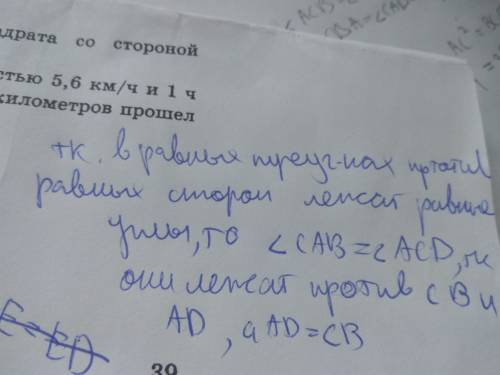 адрата со стороной
стью 5,6 км/ч и 1 ч
километров прошел
тк. в равных треуг-ках против
равных сторон лежат равные
углы, то ∠CAB=∠ACD, тк
они лежат против CB и
AD, а AD=CB
39